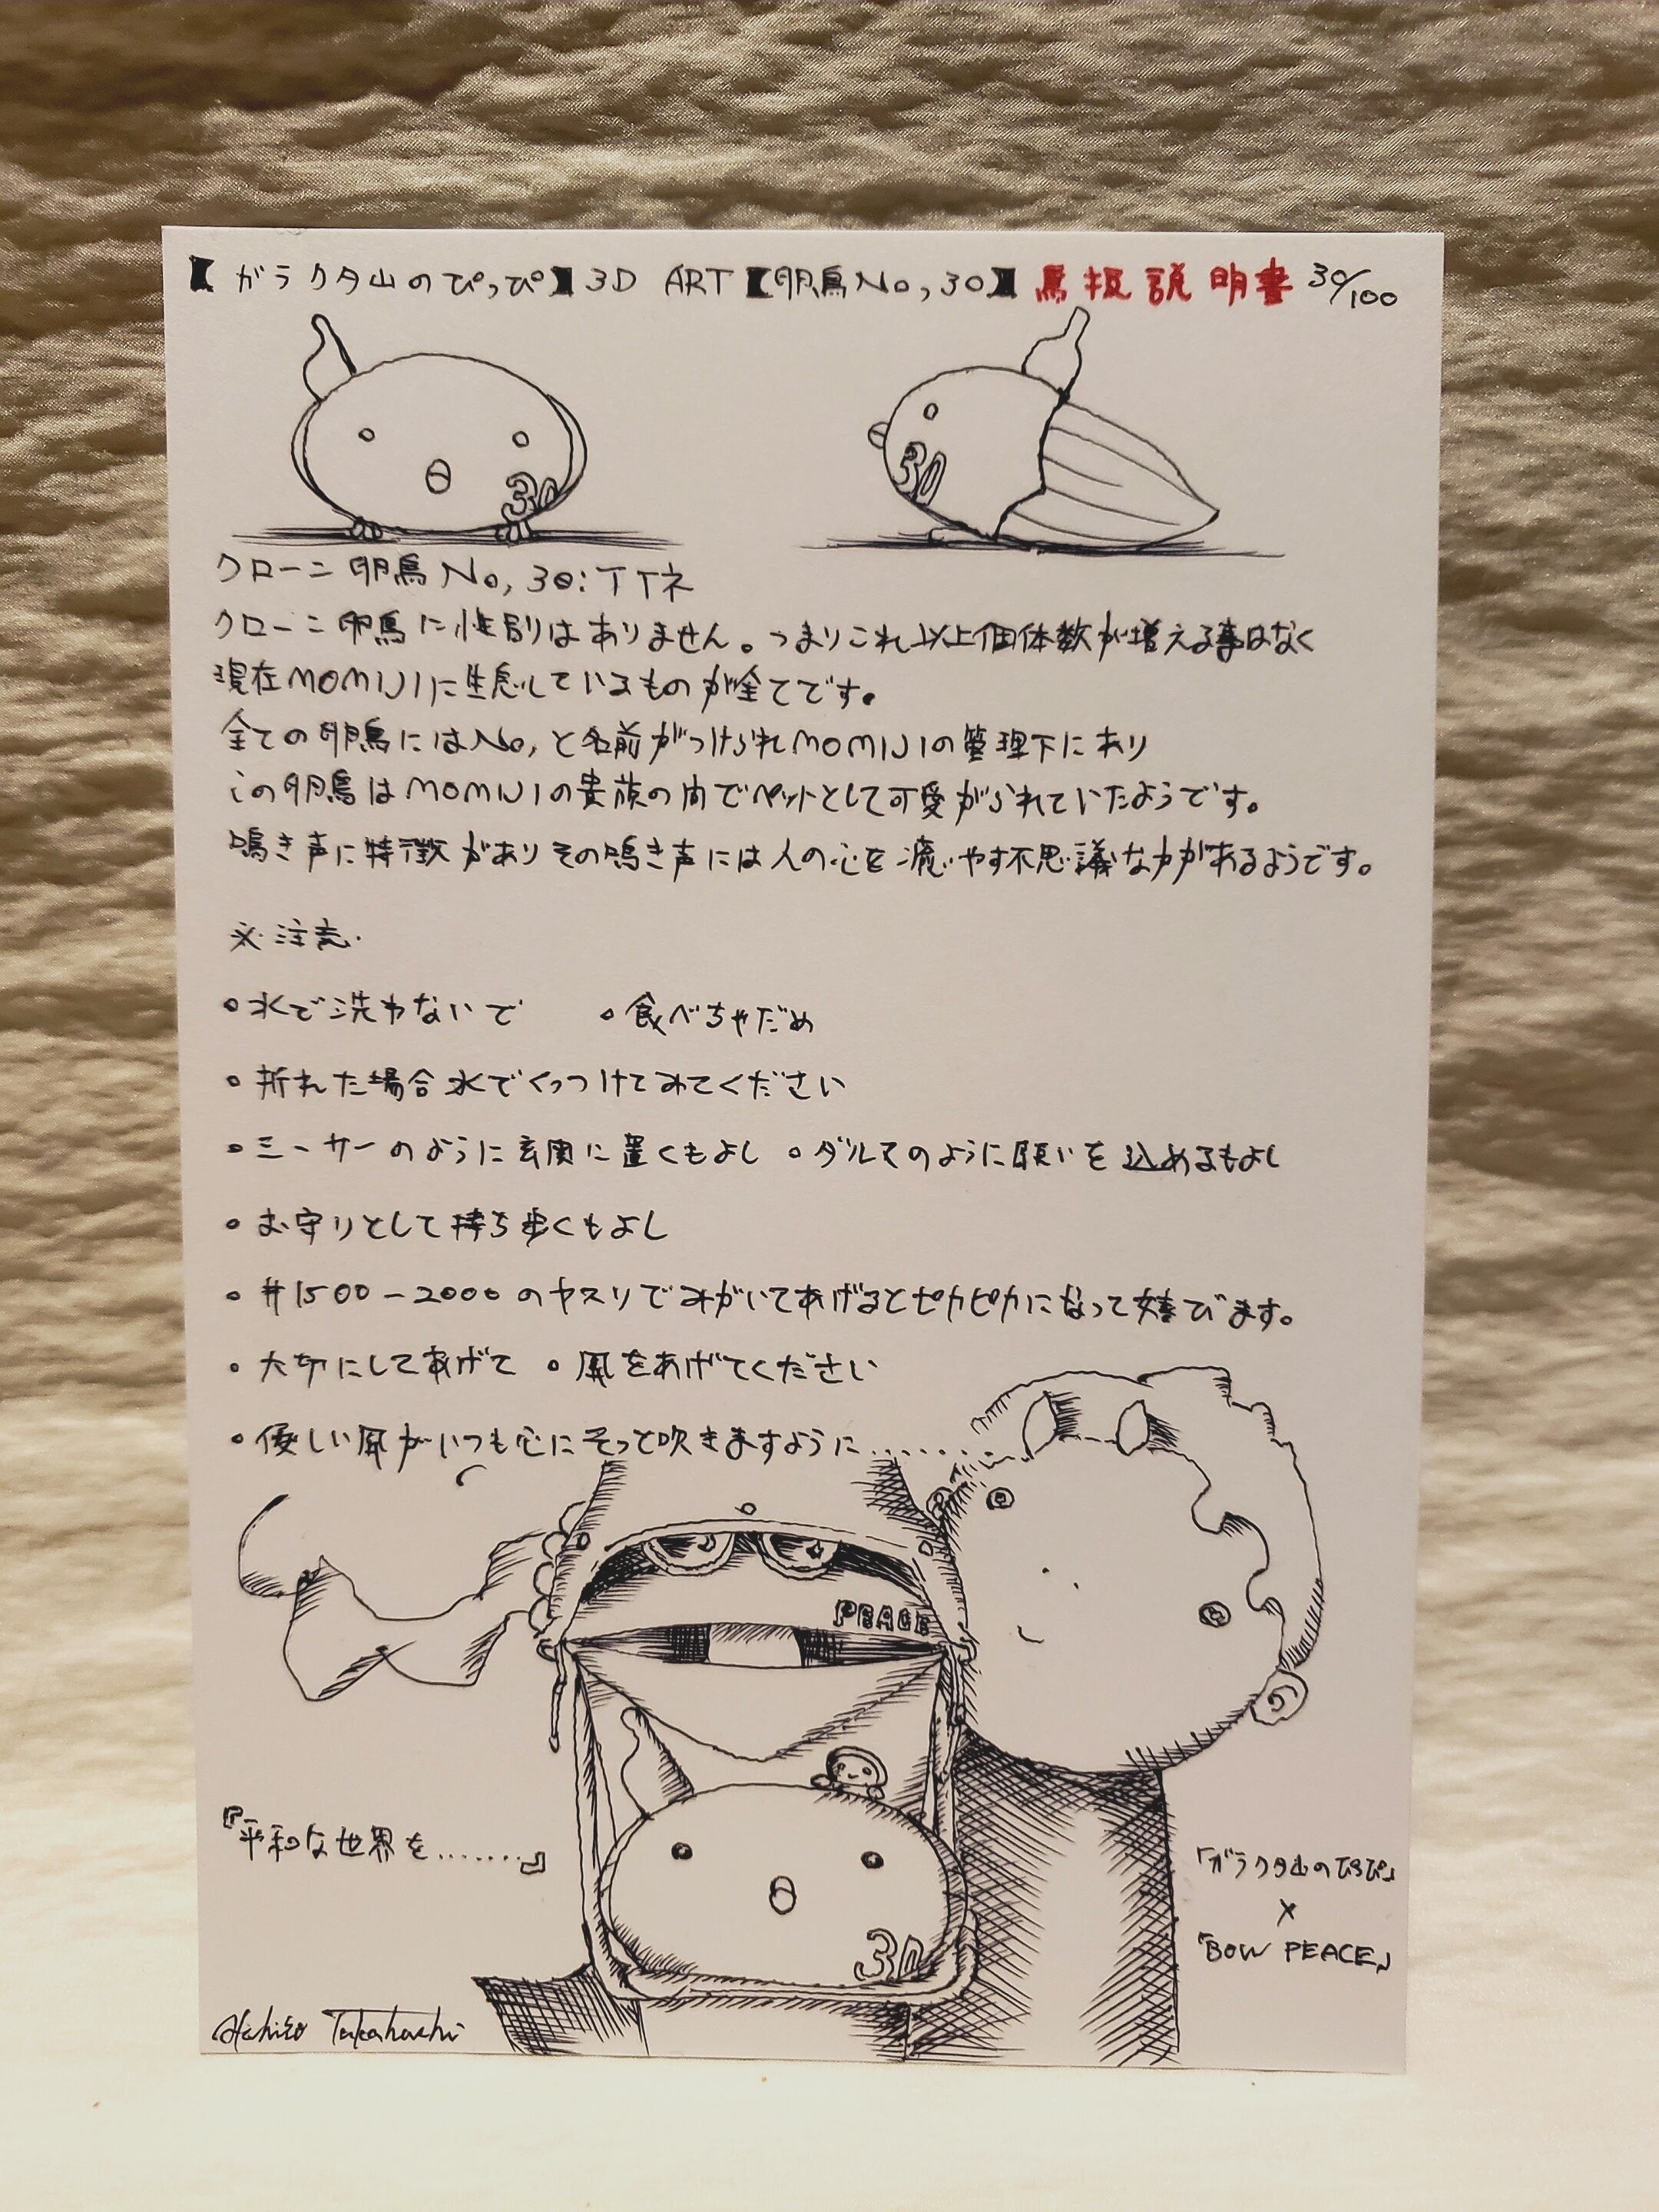 【ガラクタ山のぴっぴ】3D ART【卵鳥No,30】鳥扱説明書 30/100
30
30
クローン卵鳥No,30:TTネ
クローン卵鳥に性別はありません。つまりこれ以上個体数が増える事はなく
現在MOMIJIに生息しているものが全てです。
全ての卵鳥にはNo,と名前がつけられMOMIJIの管理下にあり
この卵鳥はMOMIJIの貴族の間でペットとして可愛がられていたようです。
鳴き声に特徴がありその鳴き声には人の心を癒やす不思議な力があるようです。
※注意.
•水で洗わないで •食べちゃだめ
•折れた場合水でくっつけてみてください
•ミーサーのように玄関に置くもよし •ダルマのように願いを込めるもよし
•お守りとして持ち歩くもよし
•#1500-2000のヤスリでみがいてあげるとピカピカになって喜びます。
•大切にしてあげて •風をあげてください
•優しい風がいつも心にそっと吹きますように........
PEACE
『平和な世界を.......』
30
「ガラクタ山のぴっぴ」
×
「BOW PEACE」
Akhiro Takahashi